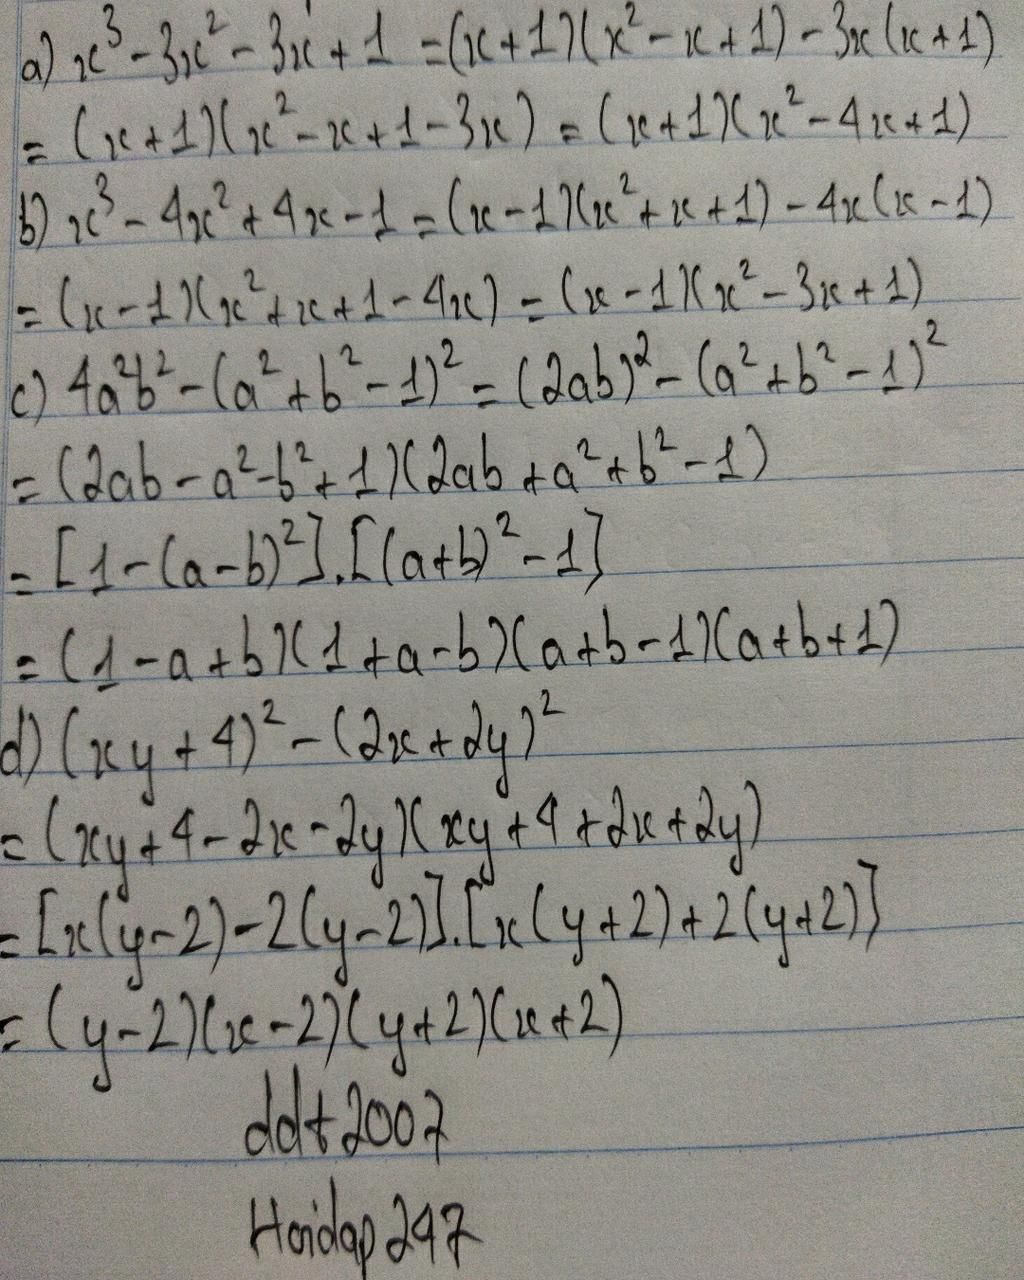 a) x³ - 3x² - 3x + 1 = (x+1)(x² - x + 1) - 3x(x+1)
= (x+1)(x² - x + 1 - 3x) = (x+1)(x² - 4x + 1)
b) x³ - 4x² + 4x - 1 = (x-1)(x² + x + 1) - 4x(x-1)
= (x-1)(x² + x + 1 - 4x) = (x-1)(x² - 3x + 1)
c) 4a²b² - (a² + b² - 1)² = (2ab)² - (a² + b² - 1)²
= (2ab - a² - b² + 1)(2ab + a² + b² - 1)
= [1 - (a-b)²].[(a+b)² - 1]
= (1 - a + b)(1 + a - b)(a + b - 1)(a + b + 1)
d) (xy + 4)² - (2x + 2y)²
= (xy + 4 - 2x - 2y)(xy + 4 + 2x + 2y)
= [x(y-2) - 2(y-2)].[x(y+2) + 2(y+2)]
= (y-2)(x-2)(y+2)(x+2)
ddt2007
Hoidap247